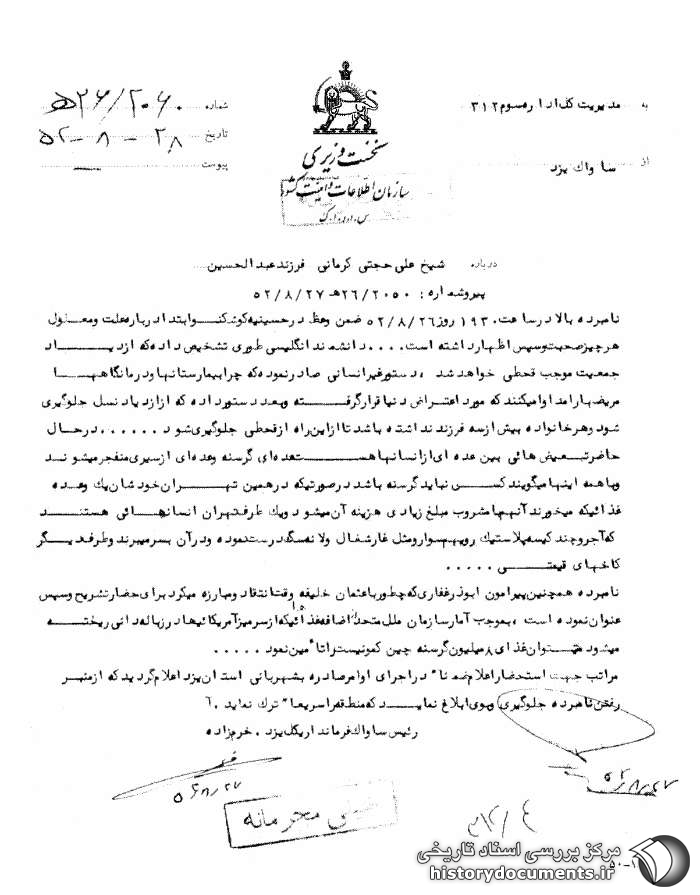 به مدیریت کل اداره سوم ۳۱۲
شماره ۲۶/۲۰۶۰ه
تاریخ ۲۸-۸-۵۲
از ساواک یزد
پیوست
نخست وزیری
سازمان اطلاعات و امنیت کشور
س.ا.و.ا.ک
درباره شیخ علی حجتی کرمانی فرزند عبدالحسین
پیروشماره: ۲۶/۲۰۵۰ه ۵۲/۸/۲۷
نامبرده بالا در ساعت ۱۹۳۰ روز ۵۲/۸/۲۶ ضمن وعظ در حسینیه کوشکنو ابتدا درباره علت و معلول
هر چیز صحبت و سپس اظهار داشته است .... دانشمند انگلیسی طوری تشخیص داده که ازدیاد
جمعیت موجب قحطی خواهد شد ، دستور غیرانسانی صادر نموده که چرا بیمارستانها و درمانگاهها
مریضها را مداوا میکنند که مورد اعتراض دنیا قرار گرفته و بعد دستور داده که از ازدیاد نسل جلوگیری
شود و هر خانواده بیش از سه فرزند نداشته باشد تا از این راه از قحطی جلوگیری شود ...... در حال
حاضر تبعیض هائی بین عده ای از انسانها هست عده ای گرسنه و عده ای از سیری منفجر میشوند
و با همه اینها میگویند کسی نباید گرسنه باشد در صورتیکه در همین تهران خودشان یک وعده
غذائیکه میخورند آنهم با مشروب مبلغ زیادی هزینه آن میشود و یک طرف تهران انسانهائی هستند
که آجر و چند کیسه پلاستیک رویهم سوار و مثل غار شغال و لانه سگ درست نموده و در آن بسر میبرند و طرف دیگر
کاخهای قیمتی .....
نامبرده همچنین پیرامون ابوذر غفاری که چطور با عثمان خلیفه وقت انتقاد و مبارزه میکرد برای حضار تشریح و سپس
عنوان نموده است ، بموجب آمار سازمان ملل متحد از اضافه غذائیکه از سر میز آمریکائیها در زباله دانی ریخته
میشود میتوان غذای ۸ میلیون گرسنه چین کمونیست را تأمین نمود .....
مراتب جهت استحضار اعلام ضمناً در اجرای اوامر صادره بشهربانی استان یزد اعلام گردید که از منبر
رفتن نامبرده جلوگیری و بوی ابلاغ نمایند که منطقه را سریعاً ترک نماید .
رئیس ساواک فرمانداریکل یزد . خرم زاده
۵۲/۸/۲۷
۵۲/۸/۲۷
خیلی محرمانه
۳۱۲/۴
۵۰-۱
مرکز بررسی اسناد تاریخی
historydocuments.ir